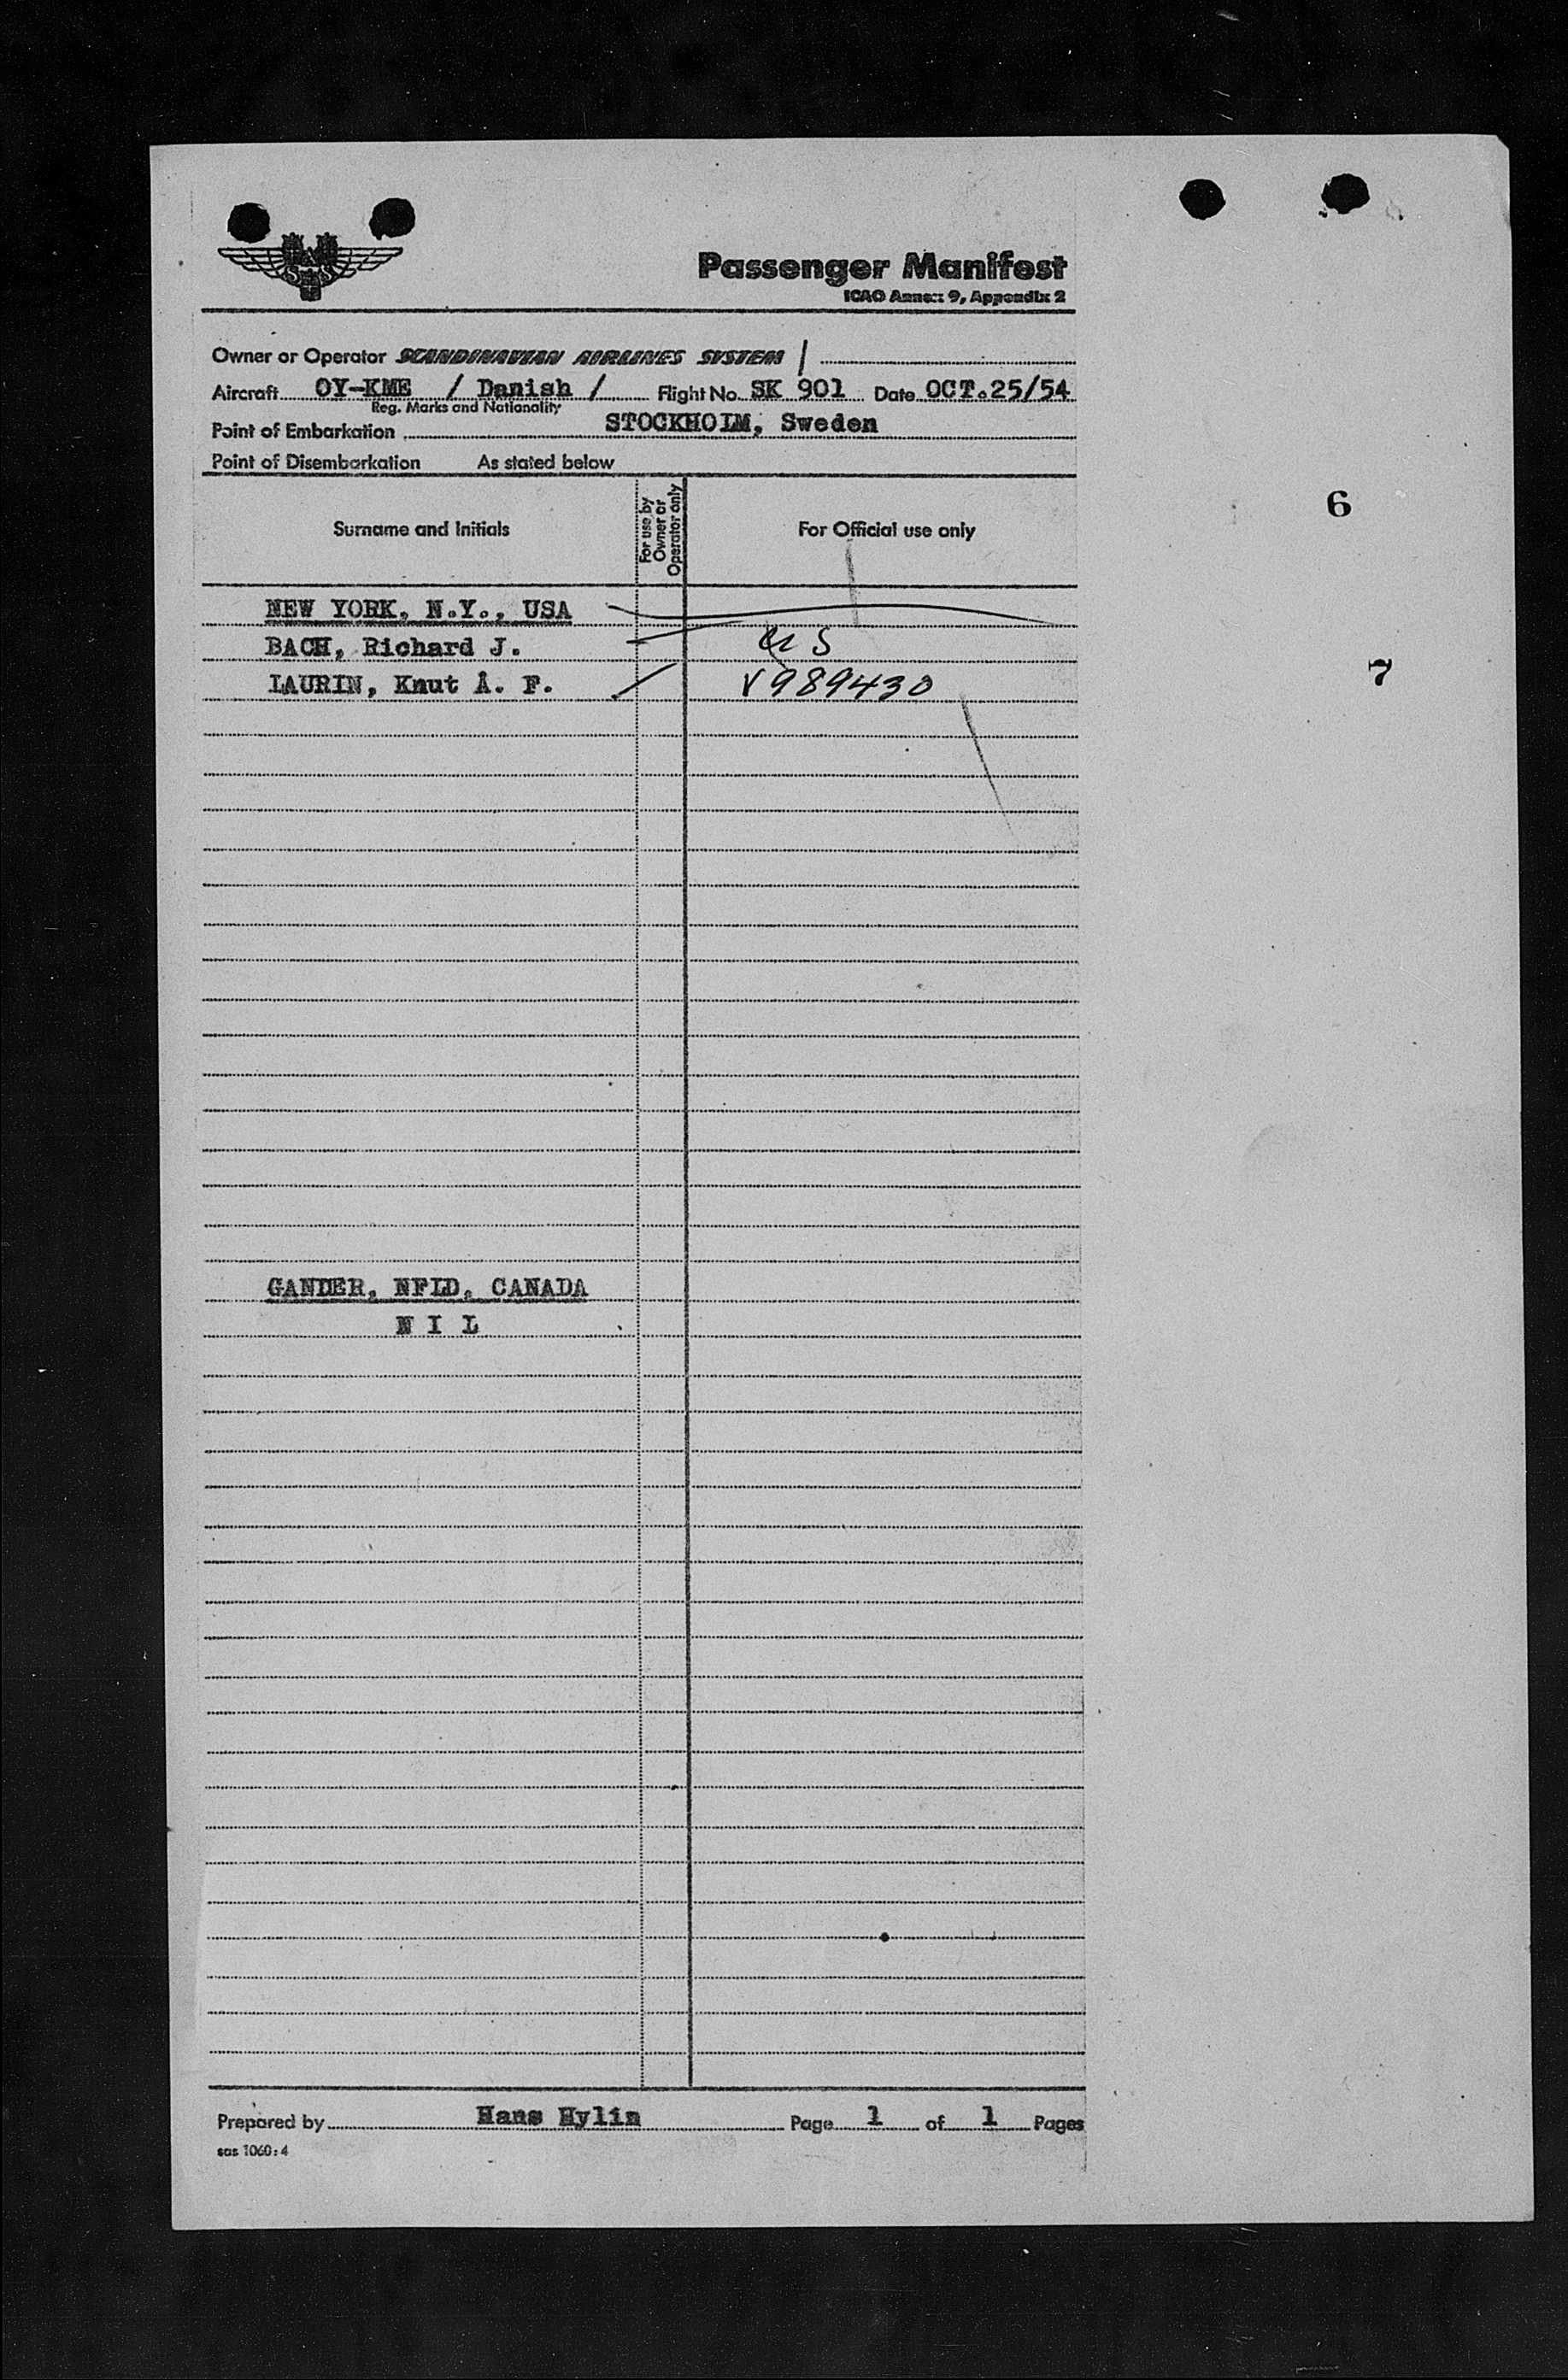 SAS
Passenger Manifest
ICAO Annex 9, Appendix 2
Owner or Operator SCANDINAVIAN AIRLINES SYSTEM /
Aircraft OY-KME / Danish / Flight No. SK 901 Date OCT.25/54
Reg. Marks and Nationality
Point of Embarkation STOCKHOLM, Sweden
Point of Disembarkation As stated below
Surname and Initials
For use by
Owner or
Operator only
For Official use only
6
NEW YORK, N.Y., USA
BACH, Richard J. US
LAURIN, Knut Å. F. V989430
7
GANDER, NFLD, CANADA
N I L
Prepared by Hans Hylin Page 1 of 1 Pages
sas 1060:4